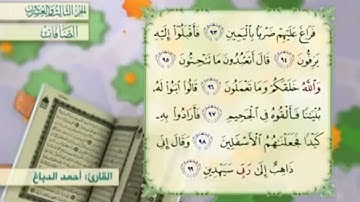 الجزء الثالث والعشرون
الصافات
فَرَاغَ عَلَيْهِمْ ضَرْبًا بِالْيَمِينِ ٩٣ فَأَقْبَلُوا إِلَيْهِ
يَزِفُّونَ ٩٤ قَالَ أَتَعْبُدُونَ مَا تَنْحِتُونَ ٩٥
وَاللَّهُ خَلَقَكُمْ وَمَا تَعْمَلُونَ ٩٦ قَالُوا ابْنُوا لَهُ
بُنْيَانًا فَأَلْقُوهُ فِي الْجَحِيمِ ٩٧ فَأَرَادُوا بِهِ
كَيْدًا فَجَعَلْنَاهُمُ الْأَسْفَلِينَ ٩٨ وَقَالَ إِنِّي
ذَاهِبٌ إِلَىٰ رَبِّي سَيَهْدِينِ ٩٩
القارئ: أحمد الدباغ